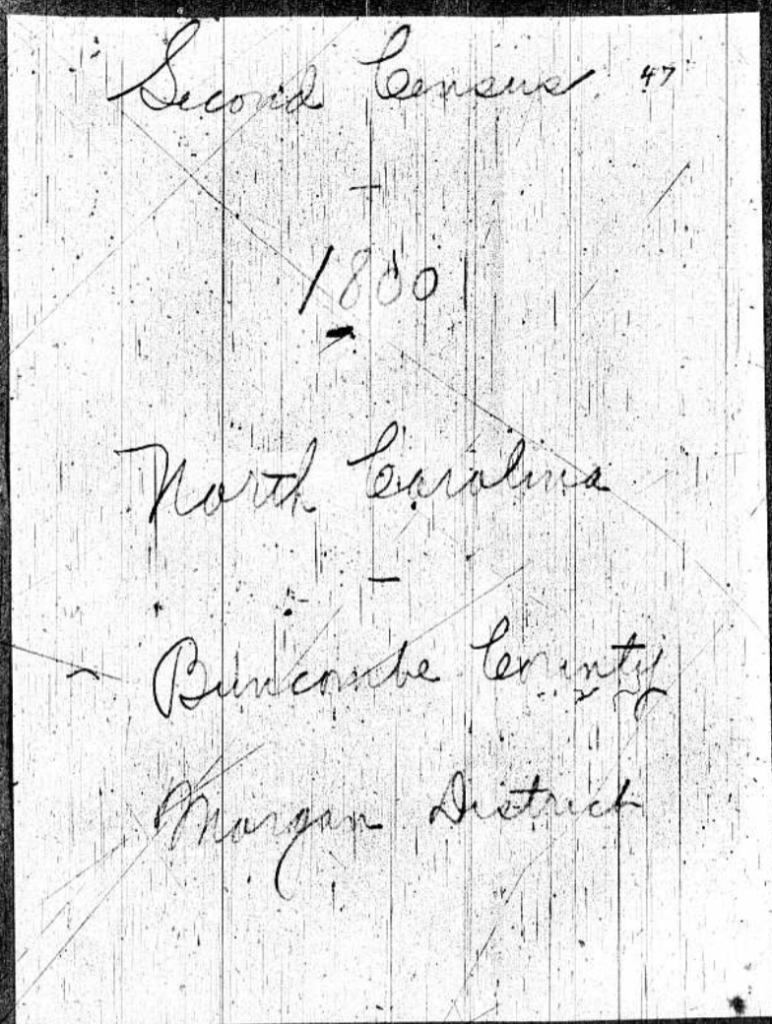 Second Census 47
1800
North Carolina
-
Buncombe County
Morgan District